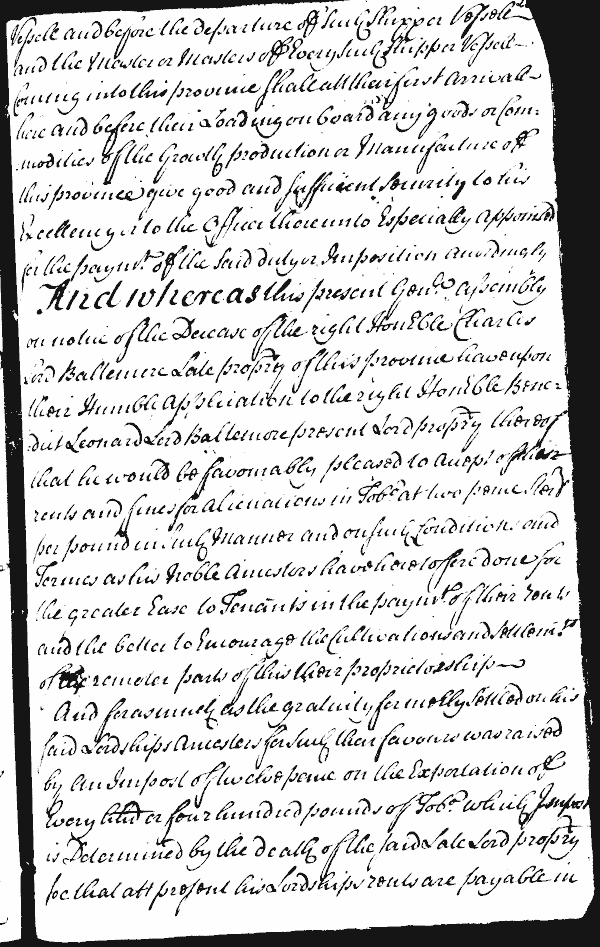 Vessell and before the departure off such Ship or Vessell
and the Master or Masters off Every such Ship or Vessell
Coming into this province shall att their first Arrivall
here and before their Loading on board any goods or Com=
modities of the Growth production or Manufacture off
this province give good and sufficient Security to his
Excellency or to the Officer thereunto Especially Appointed
for the paymt. of the said duty or Imposition accordingly
And whereas this present Genll. Assembly
on notice of the Decease of the right Honble Charles
Lord Baltemore Late propry of this province have upon
their Humble Application to the right Honble Bene=
dict Leonard Lord Baltemore present Lord propry thereof
that he would be favourably pleased to Accept of their
rents and fines for Alienations in Tobo. at two pence Sterl
per pound in such Manner and on such Conditions and
Termes as his Noble Ancestors have heretofore done for
the greater Ease to Tenants in the paymt. of their rents
and the better to Encourage the Cultivations and Settlemts
of the remoter parts of this their proprietorship
And forasmuch as the gratuity formerly Settled on his
said Lordships Ancestors for such their favours was raised
by an Impost of twelve pence on the Exportation off
Every hhd or four hundred pounds of Tobo. which Impost
is Determined by the death of the said Late Lord propry
soe that att present his Lordships rents are payable in